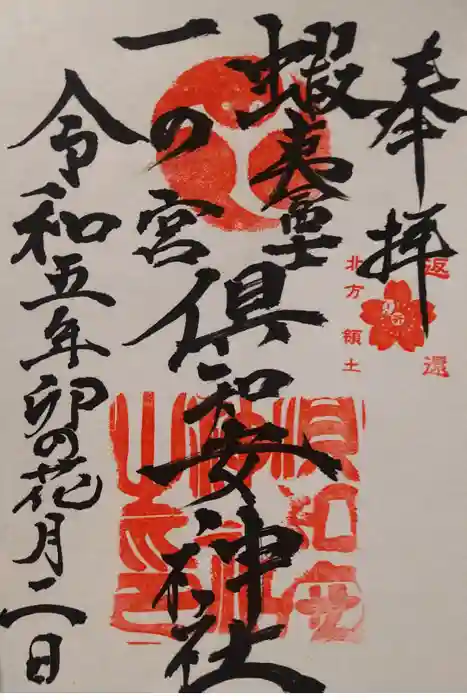 奉拝
返還
北方領土
蝦夷富士
一の宮
倶知安神社
倶知安神社之印
令和五年卯の花月二日